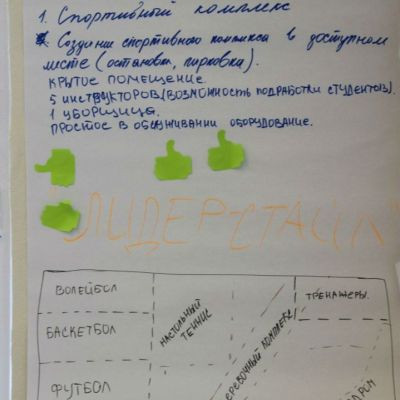 1. Спортивный комплекс
Создание спортивного комплекса в доступном
месте (остановки, парковка).
КРЫТОЕ ПОМЕЩЕНИЕ.
5 ИНСТРУКТОРОВ (ВОЗМОЖНОСТЬ ПОДРАБОТКИ СТУДЕНТОВ).
1 УБОРЩИЦА.
ПРОСТОЕ В ОБСЛУЖИВАНИИ ОБОРУДОВАНИЕ.
ЛИДЕР-СТАЙЛ"
ВОЛЕЙБОЛ
БАСКЕТБОЛ
ФУТБОЛ
НАСТОЛЬНЫЙ
ТЕННИС
ВЕРЕВОЧНЫЙ КОМПЛЕКС
ТРЕНАЖЕРЫ.